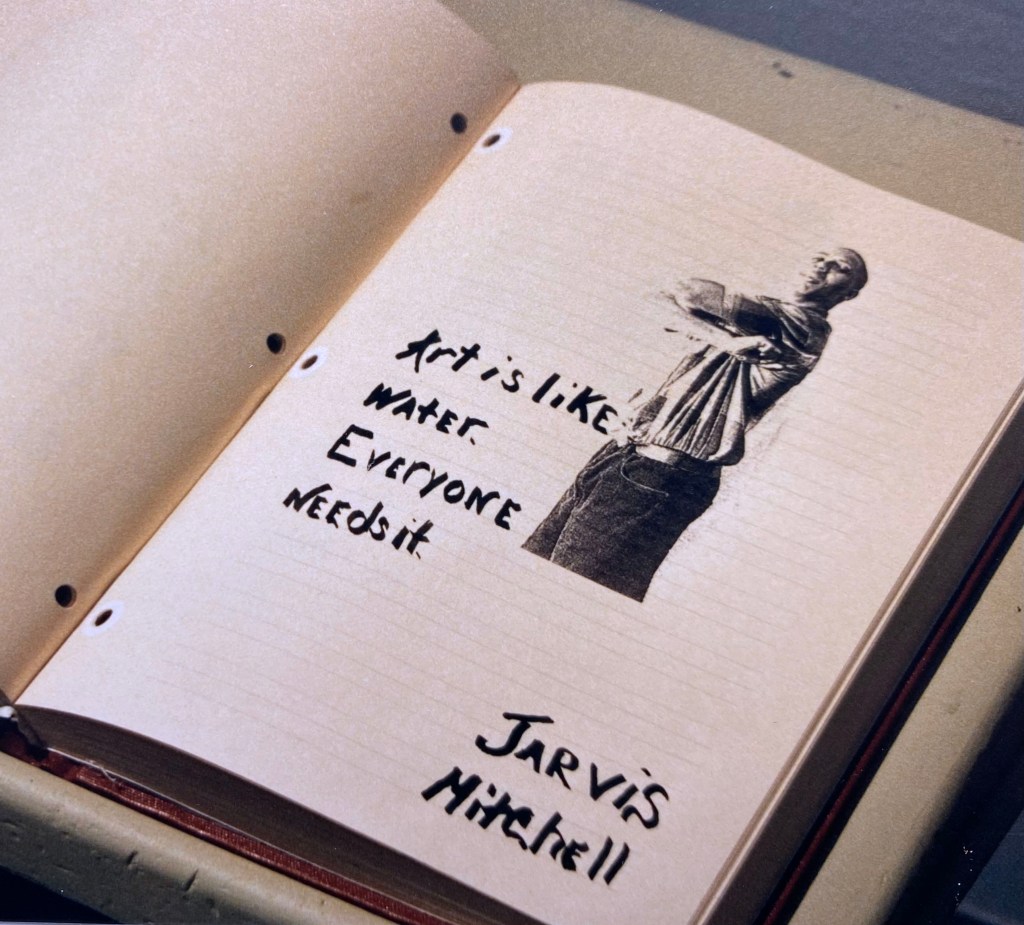 Art is like
Water.
Everyone
Needs it.
Jarvis
Mitchell